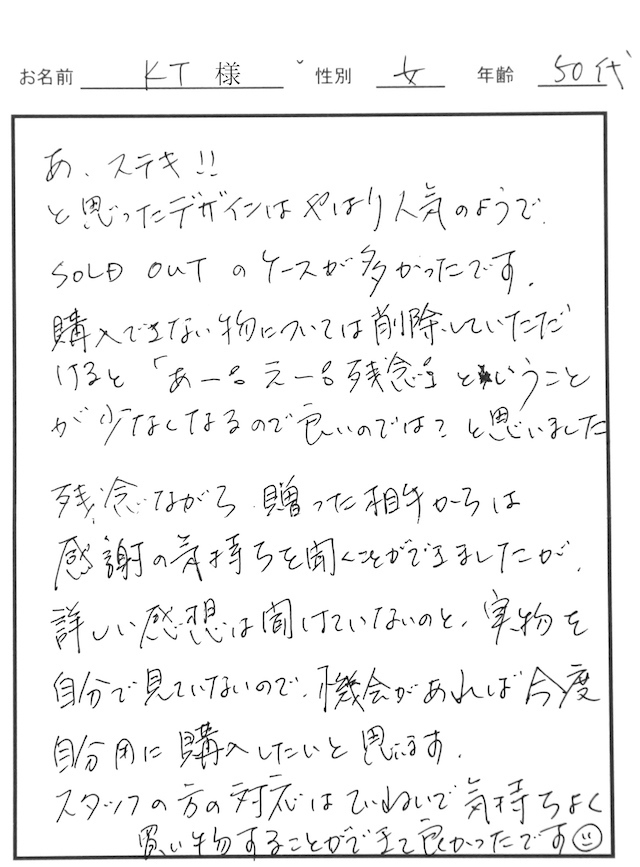 お名前 KT 様 性別 女 年齢 50代
あ、ステキ!!
と思ったデザインはやはり人気のようで、
SOLD OUT のケースが多かったです。
購入できない物については削除していただ
けると「あー。えー。残念」ということ
が少なくなるので良いのでは?と思いました
残念ながら、贈った相手からは
感謝の気持ちを聞くことができましたが、
詳しい感想は聞けていないのと、実物を
自分で見ていないので、機会があれば今度
自分用に購入したいと思います。
スタッフの方の対応はていねいで気持ちよく
買い物することができて良かったです☺